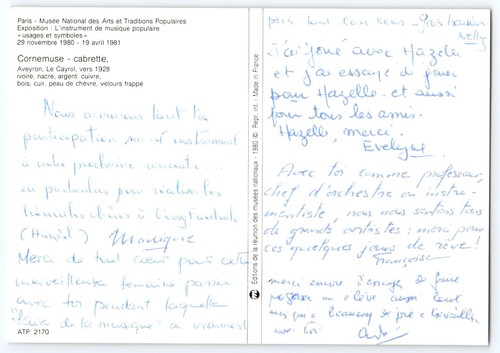 Paris - Musée National des Arts et Traditions Populaires
Exposition : L'instrument de musique populaire
« usages et symboles »
29 novembre 1980 - 19 avril 1981
Cornemuse - cabrette,
Aveyron, Le Cayrol, vers 1928
ivoire, nacre, argent, cuivre,
bois, cuir, peau de chèvre, velours frappé
Nous aimerions tant ta
participation
à notre prochaine rencontre...
en particulier pour
(Händel) Monique
Merci de tout cœur pour cette
merveilleuse semaine passée
avec toi pendant laquelle
"faire de la musique" a vraiment
ATP. 2170
Editions de la réunion des musées nationaux - 1980 © Repr. int. - Made in France
pris tout son sens - Gros baisers
Nelly
J'ai joué avec Hazelle
et j'ai essayé de jouer
pour Hazelle. et aussi
pour tous les amis.
Hazelle, merci.
Evelyne
Avec toi comme professeur,
chef d'orchestre ou instru-
mentiste, nous nous sentons tous
de grands artistes : merci pour
ces quelques jours de rêve !
Françoise
merci encore
professeur élève
beaucoup de joie à travailler
avec toi.